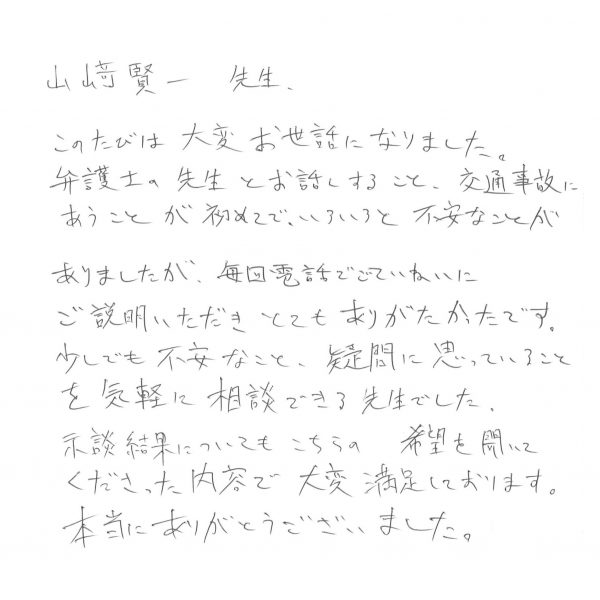 山﨑賢一 先生、
このたびは 大変 お世話に なりました。
弁護士の 先生 と お話し すること、交通事故に
あうこと が 初めてで、いろいろと 不安なことが
ありましたが、毎回電話でごていねいに
ご説明いただき とても ありがたかったです。
少しでも 不安なこと、疑問に 思っていること
を 気軽に 相談できる 先生でした。
示談結果についても こちらの 希望を聞いて
くださった内容で 大変満足しております。
本当にありがとうございました。